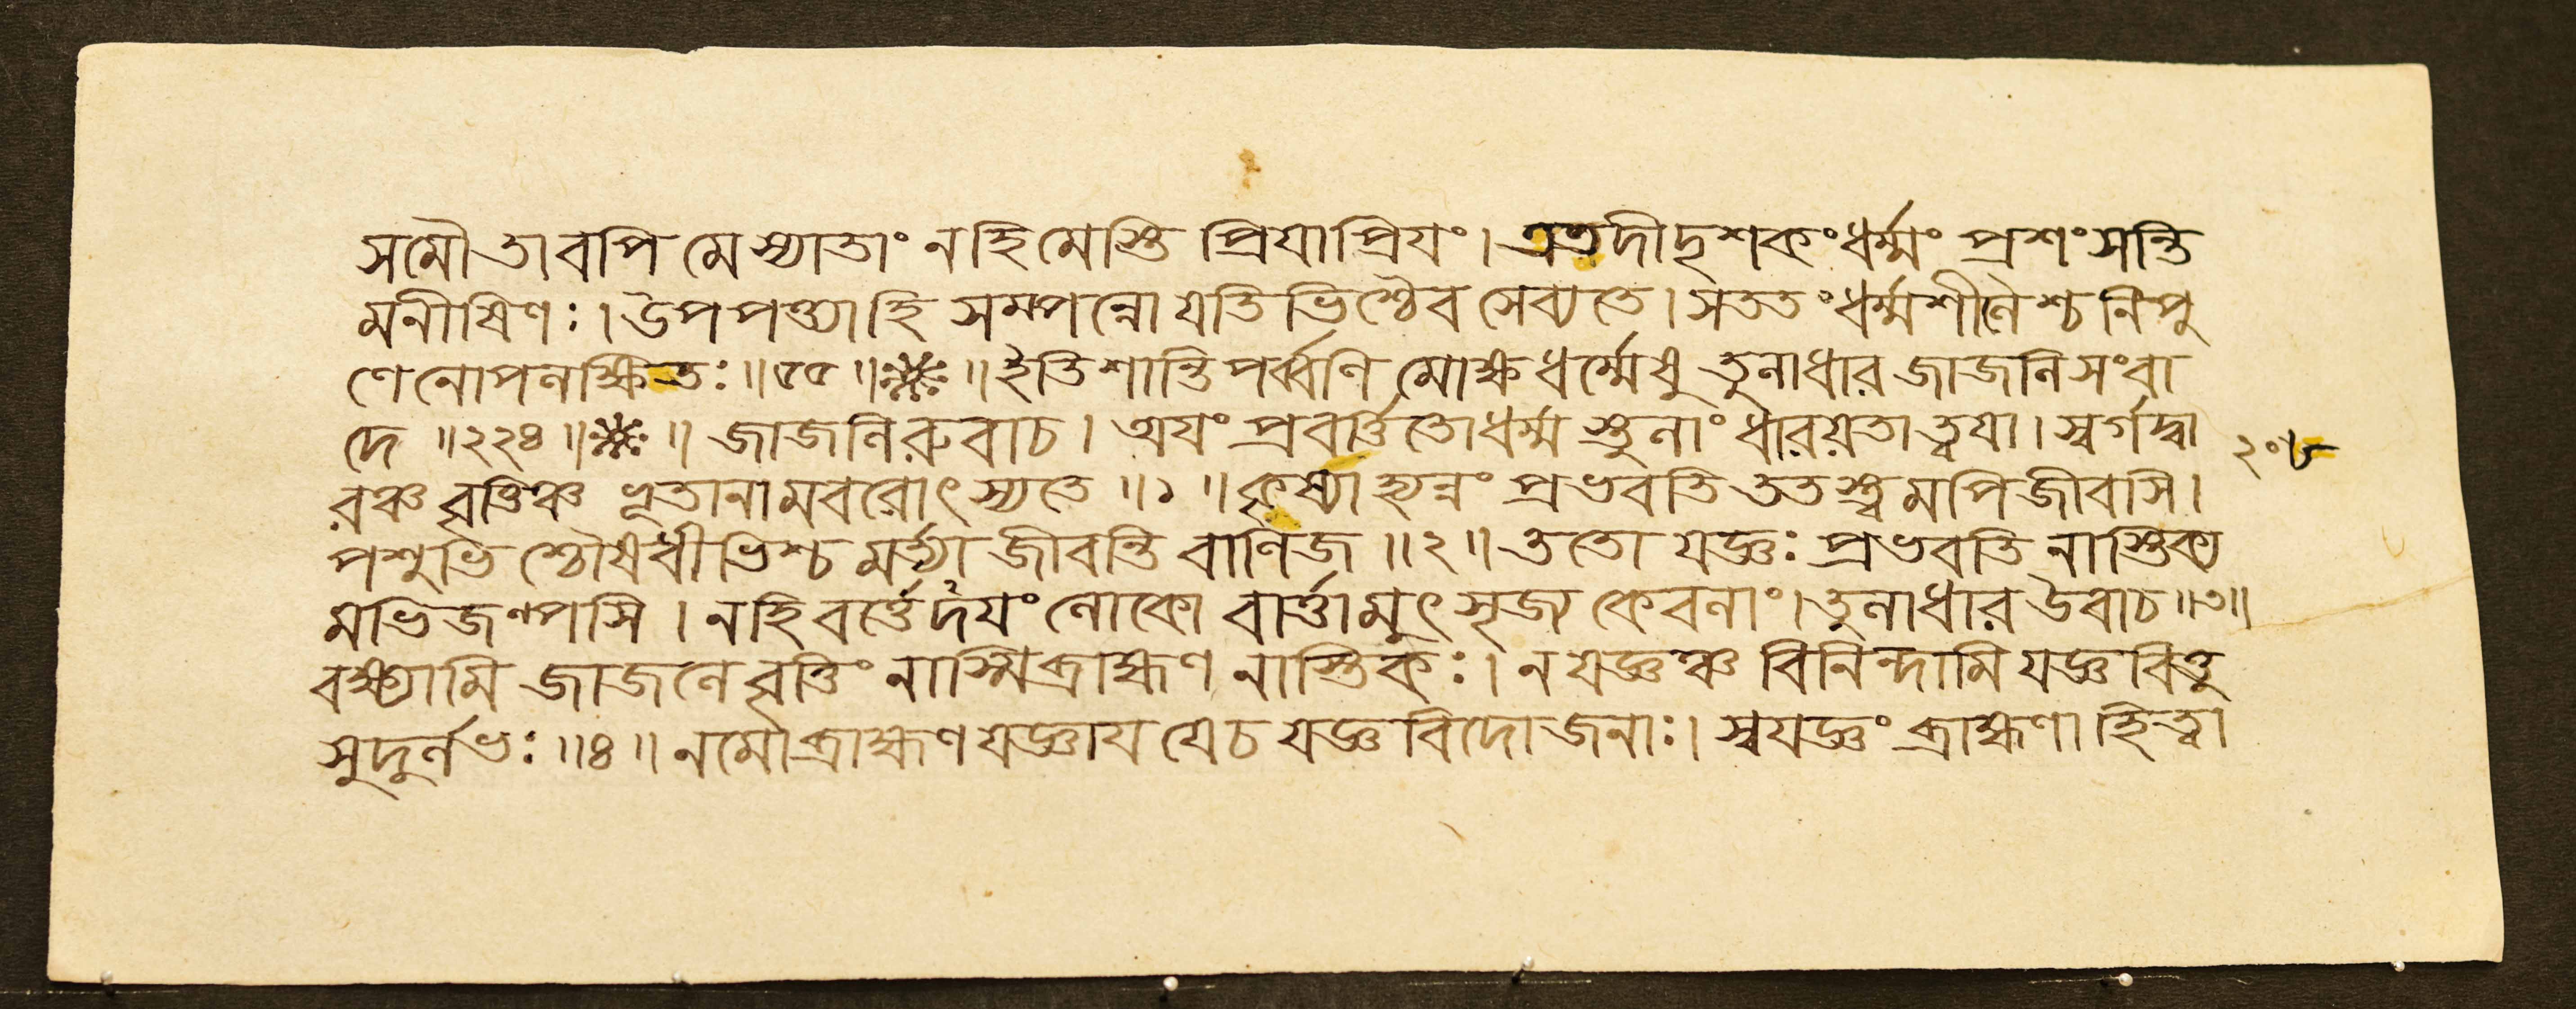 সমৌ তাবপি মে স্যাতাং নহি মেস্তি প্রিযাপ্রিযং। এতদীদৃশকং ধর্ম্মং প্রশংসন্তি
মনীষিণঃ। উপপত্ত্যাহি সম্পন্নো যতিভিশ্চৈব সেব্যতে। সততং ধর্ম্মশীলৈশ্চ নিপু
ণেনোপলক্ষিতঃ॥৫৫॥※॥ইতি শান্তিপর্ব্বণি মোক্ষধর্ম্মেষু তুলাধার জাজলি সংবা
দে ॥২২৪॥※॥ জাজলিরুবাচ। অযং প্রবর্ত্তিতো ধর্ম্ম স্তুলাং ধারয়তা ত্বযা। স্বর্গদ্বা
রঞ্চ বৃত্তিঞ্চ ভূতানামবরোৎস্যতে ॥১॥ কৃষ্যা হ্যন্নং প্রভবতি ততস্ত্বমপি জীবসি।
পশুভি শ্চৌষধীভিশ্চ মর্ত্ত্যা জীবন্তি বাণিজ ॥২॥ ততো যজ্ঞঃ প্রভবতি নাস্তিক্য
মভিজল্পসি । নহি বর্ত্তেদযং লোকো বার্ত্তামুৎসৃজ্য কেবলাং। তুলাধার উবাচ॥৩॥
বক্ষ্যামি জাজলে বৃত্তিং নাস্মি ব্রাহ্মণ নাস্তিকঃ। ন যজ্ঞঞ্চ বিনিন্দামি যজ্ঞবিত্তু
সুদুর্লভঃ॥৪॥ নমো ব্রাহ্মণ যজ্ঞায যে চ যজ্ঞ বিদো জনাঃ। স্বযজ্ঞং ব্রাহ্মণা হিত্বা
২০৮